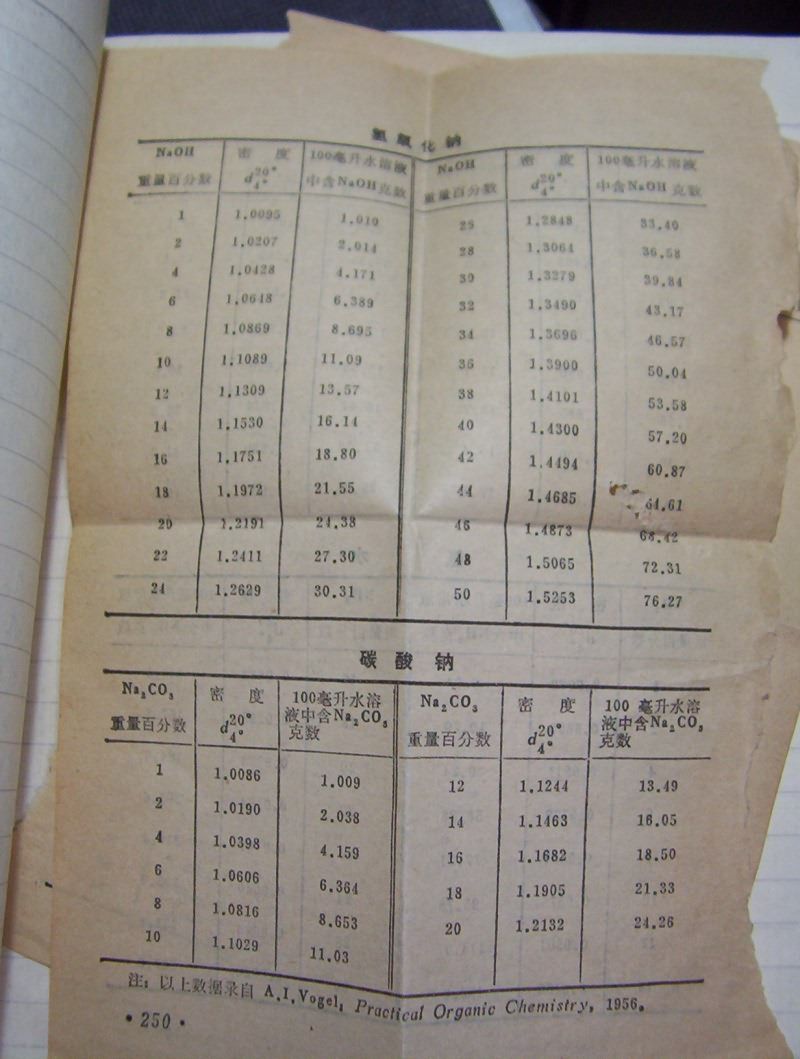 氢氧化钠
NaOH 密度 100毫升水溶液 NaOH 密度 100毫升水溶液
重量百分数 d₄°²⁰° 中含NaOH克数 重量百分数 d₄°²⁰° 中含NaOH克数
1 1.0095 1.010 26 1.2848 33.40
2 1.0207 28 1.3064 36.58
4 1.0428 4.171 30 1.3279 39.84
6 1.0648 6.389 32 1.3490 43.17
8 1.0869 8.695 34 1.3696 46.57
10 1.1089 11.09 36 1.3900 50.04
12 1.1309 13.57 38 1.4101 53.58
14 1.1530 16.14 40 1.4300 57.20
16 1.1751 18.80 42 1.4494 60.87
18 1.1972 21.55 44 1.4685 64.61
20 1.2191 24.38 46 1.4873 68.42
22 1.2411 27.30 48 1.5065 72.31
24 1.2629 30.31 50 1.5253 76.27
碳酸钠
Na₂CO₃ 密度 100毫升水溶 Na₂CO₃ 密度 100 毫升水溶
重量百分数 d₄°²⁰° 液中含Na₂CO₃ 重量百分数 d₄°²⁰° 液中含Na₂CO₃
克数 克数
1 1.0086 1.009 12 1.1244 13.49
2 1.0190 2.038 14 1.1463 16.05
4 1.0398 4.159 16 1.1682 18.50
6 1.0606 6.364 18 1.1905 21.33
8 1.0816 8.653 20 1.2132 24.26
10 1.1029 11.03
注：以上数据录自 A.I.Vogel, Practical Organic Chemistry, 1956。
·250·